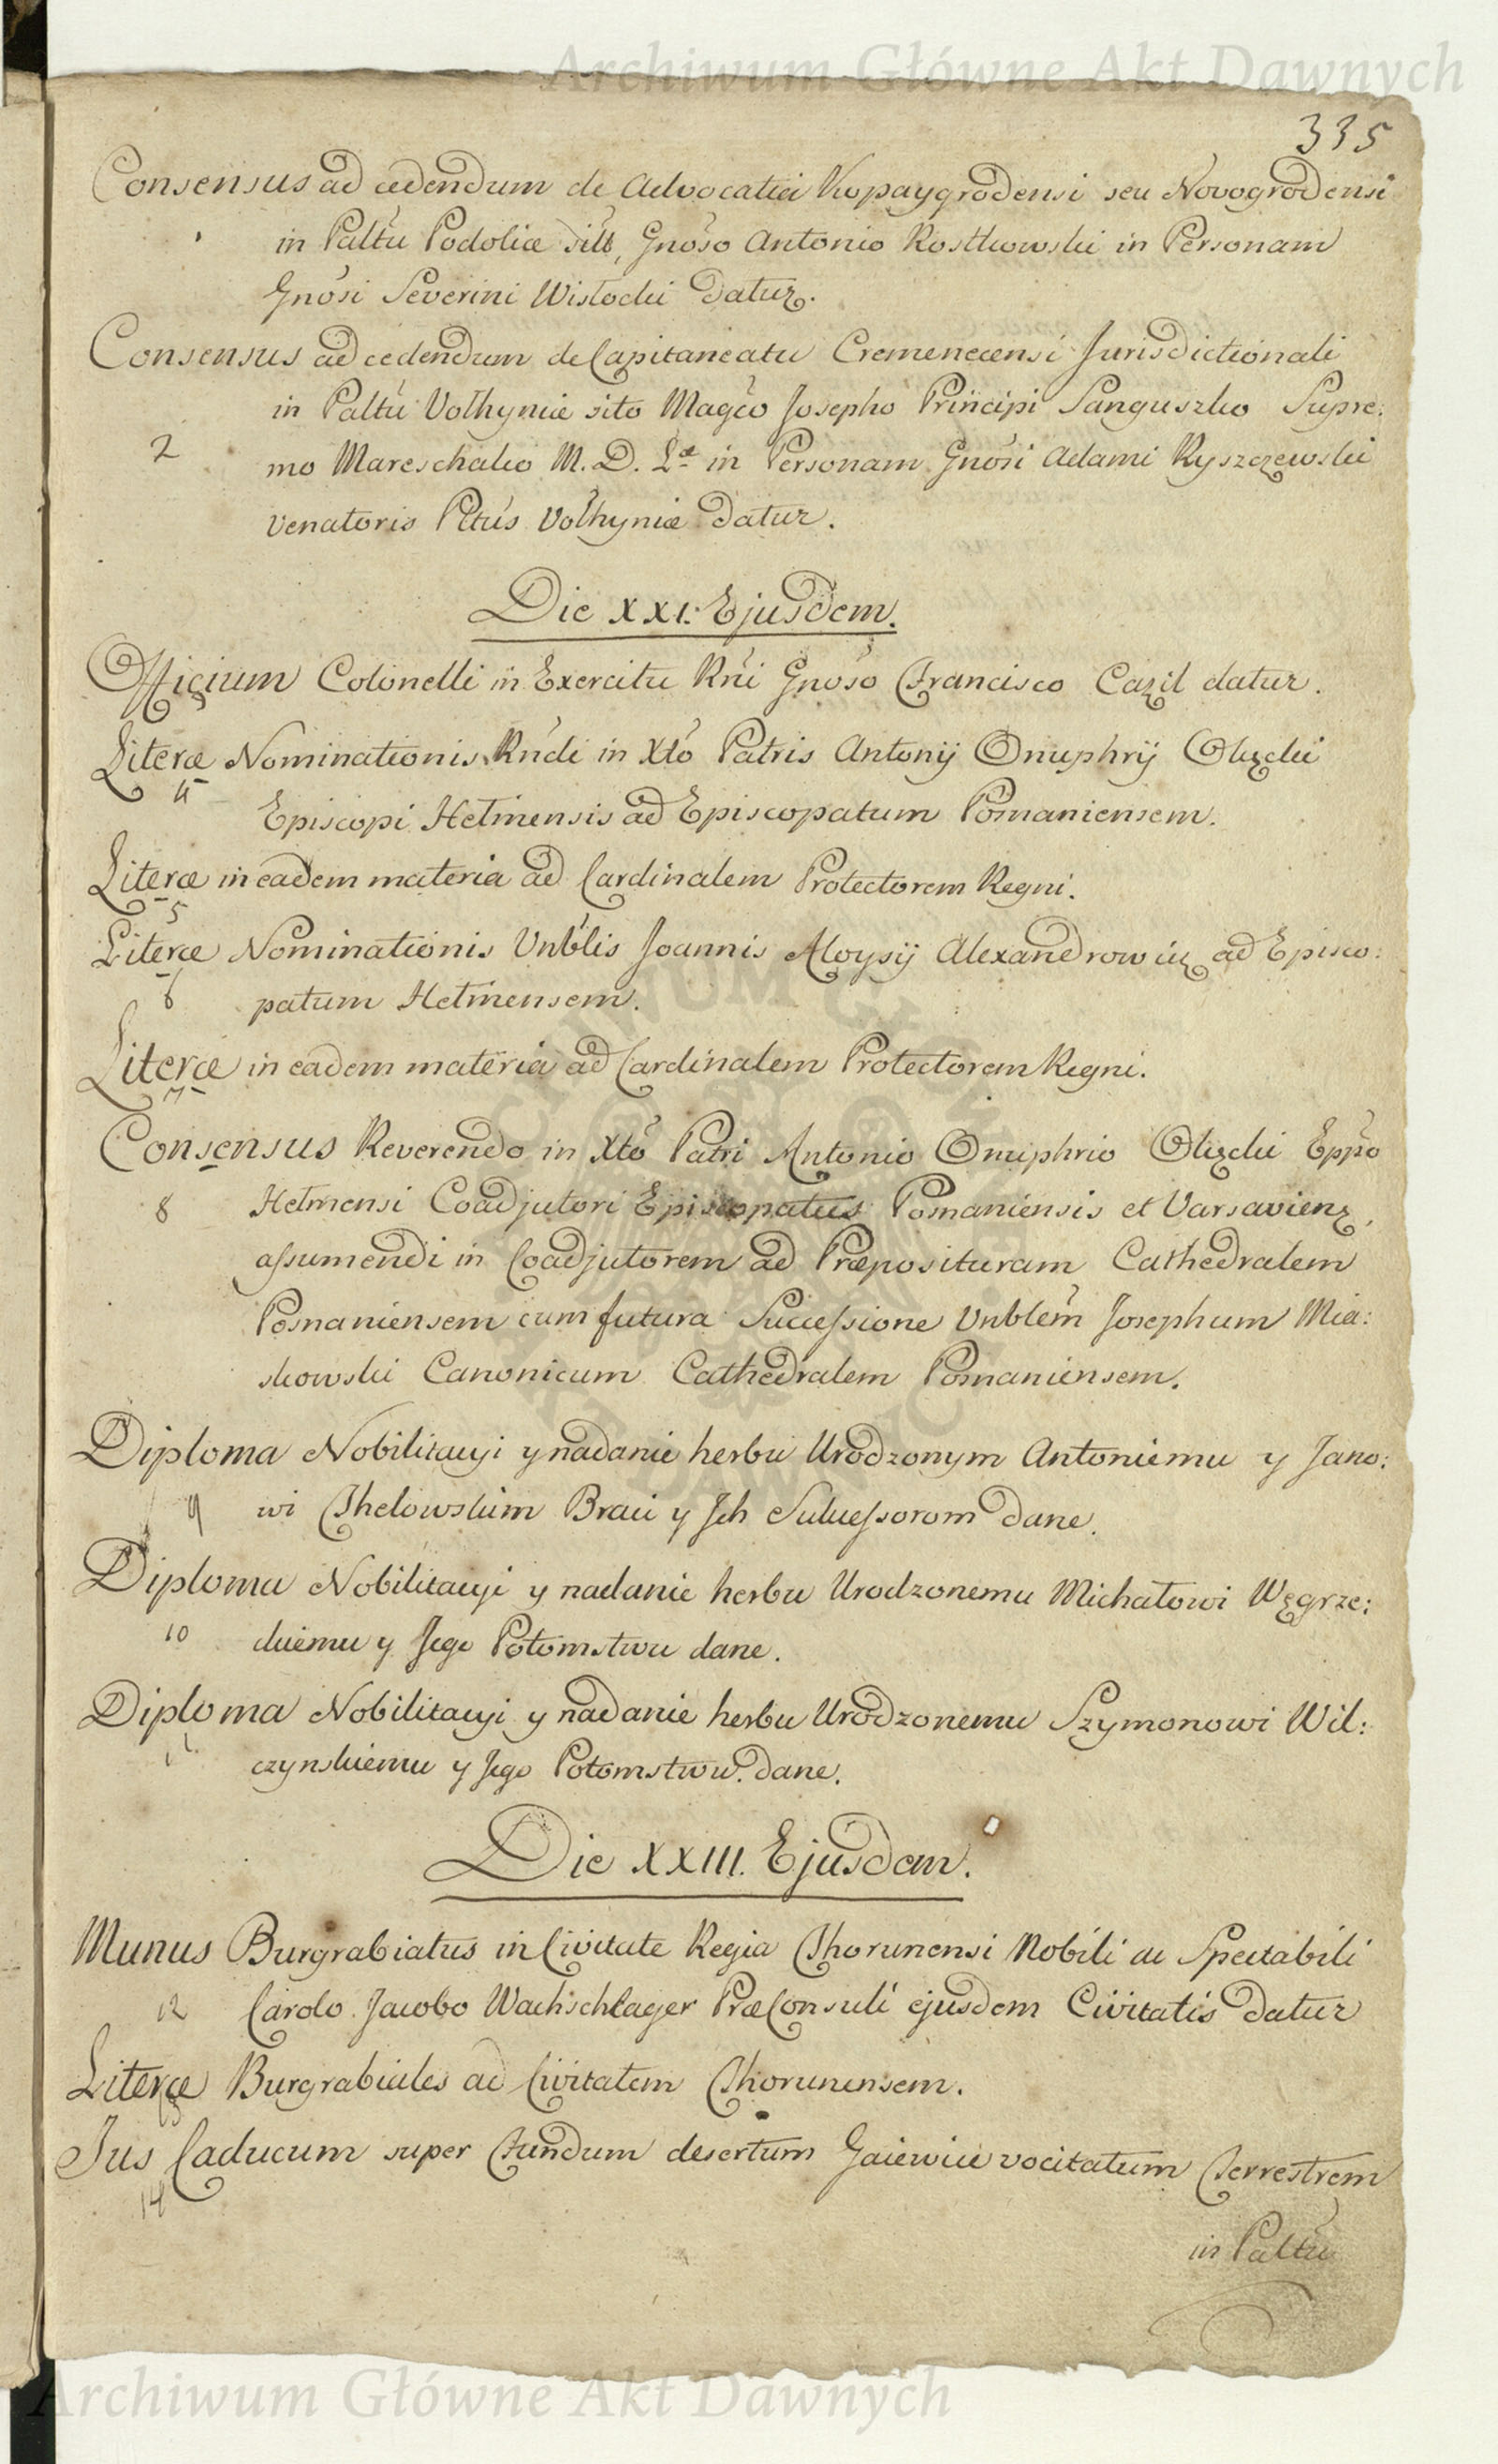 Archiwum Główne Akt Dawnych
335
Consensus ad cedendum de Advocatia Kopaygrodensi seu Novogrodensi
in Paltu Podoliæ Gnoso Antonio Rostkowski in Personam
Gnosi Severini Wisłocki datur.
Consensus ad cedendum de Capitaneatu Cremenecensi Jurisdictionali
in Paltu Volhyniæ sito Magco Josepho Principi Sanguszko Supre:
2
mo Mareschalco M. D. L. in Personam Gnosi Adami Ryszczewski
Venatoris Pltus Volhyniæ datur.
Die XXI. Ejusdem.
Officium Colonelli in Exercitu Rni Gnoso Francisco Cazil datur.
Literæ Nominationis Rndi in Xto Patris Antonij Onuphrij Okęcki
4
Episcopi Helmensis ad Episcopatum Posnaniensem.
Literæ in eadem materia ad Cardinalem Protectorem Regni.
5
Literæ Nominationis Vnblis Joannis Aloysij Alexandrowicz ad Episco:
6
patum Helmensem.
Literæ in eadem materia ad Cardinalem Protectorem Regni.
7
Consensus Reverendo in Xto Patri Antonio Onuphrio Okęcki Eppo
8
Helmensi Coadjutori Episcopatus Posnaniensis et Varsaviens,
assumendi in Coadjutorem ad Præposituram Cathedralem
Posnaniensem cum futura Successione Vnblem Josephum Mia:
skowski Canonicum Cathedralem Posnaniensem.
Diploma Nobilitacyi y nadanie herbu Urodzonym Antoniemu y Jano:
9
wi Thelowskim Braci y Ich Sukcessorom dane.
Diploma Nobilitacyi y nadanie herbu Urodzonemu Michałowi Węgrze:
10
ckiemu y Jego Potomstwu dane.
Diploma Nobilitacyi y nadanie herbu Urodzonemu Szymonowi Wil:
11
czynskiemu y Jego Potomstwu dane.
Die XXIII. Ejusdem.
Munus Burgrabiatus in Civitate Regia Thorunensi Nobili ac Spectabili
12
Carolo Jacobo Wachschlager PræConsuli ejusdem Civitatis datur
Literæ Burgrabiales ad Civitatem Thorunensem.
13
Jus Caducum super Fundum desertum Gaiewice vocitatum Terrestrem
14
in Paltu
Archiwum Główne Akt Dawnych